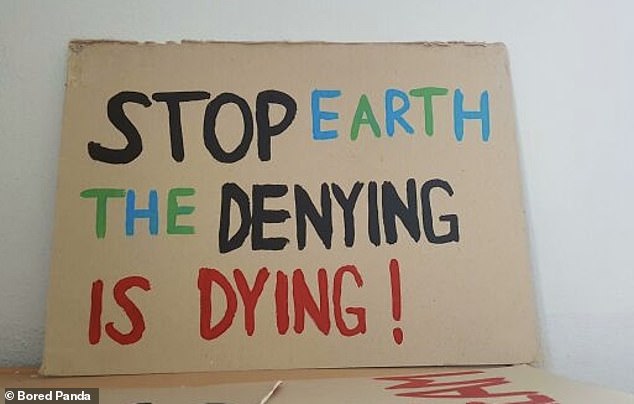 STOP EARTH
THE DENYING
IS DYING!
© Bored Panda